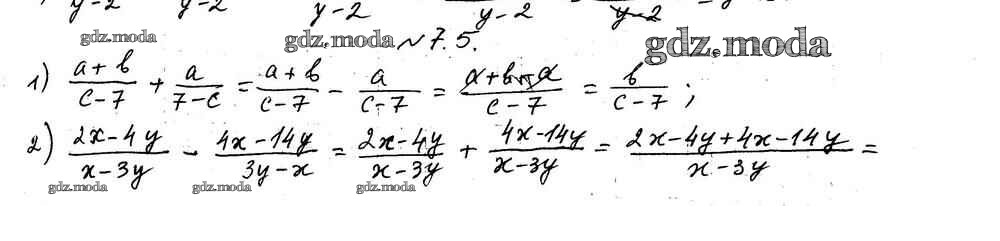 y-2 y-2 y-2 y-2 y-2
gdz.moda gdz.moda № 7.5. gdz.moda
1) \frac{a+b}{c-7} + \frac{a}{7-c} = \frac{a+b}{c-7} - \frac{a}{c-7} = \frac{a+b-a}{c-7} = \frac{b}{c-7};
2) \frac{2x-4y}{x-3y} - \frac{4x-14y}{3y-x} = \frac{2x-4y}{x-3y} + \frac{4x-14y}{x-3y} = \frac{2x-4y+4x-14y}{x-3y} =
gdz.moda gdz.moda gdz.moda gdz.moda